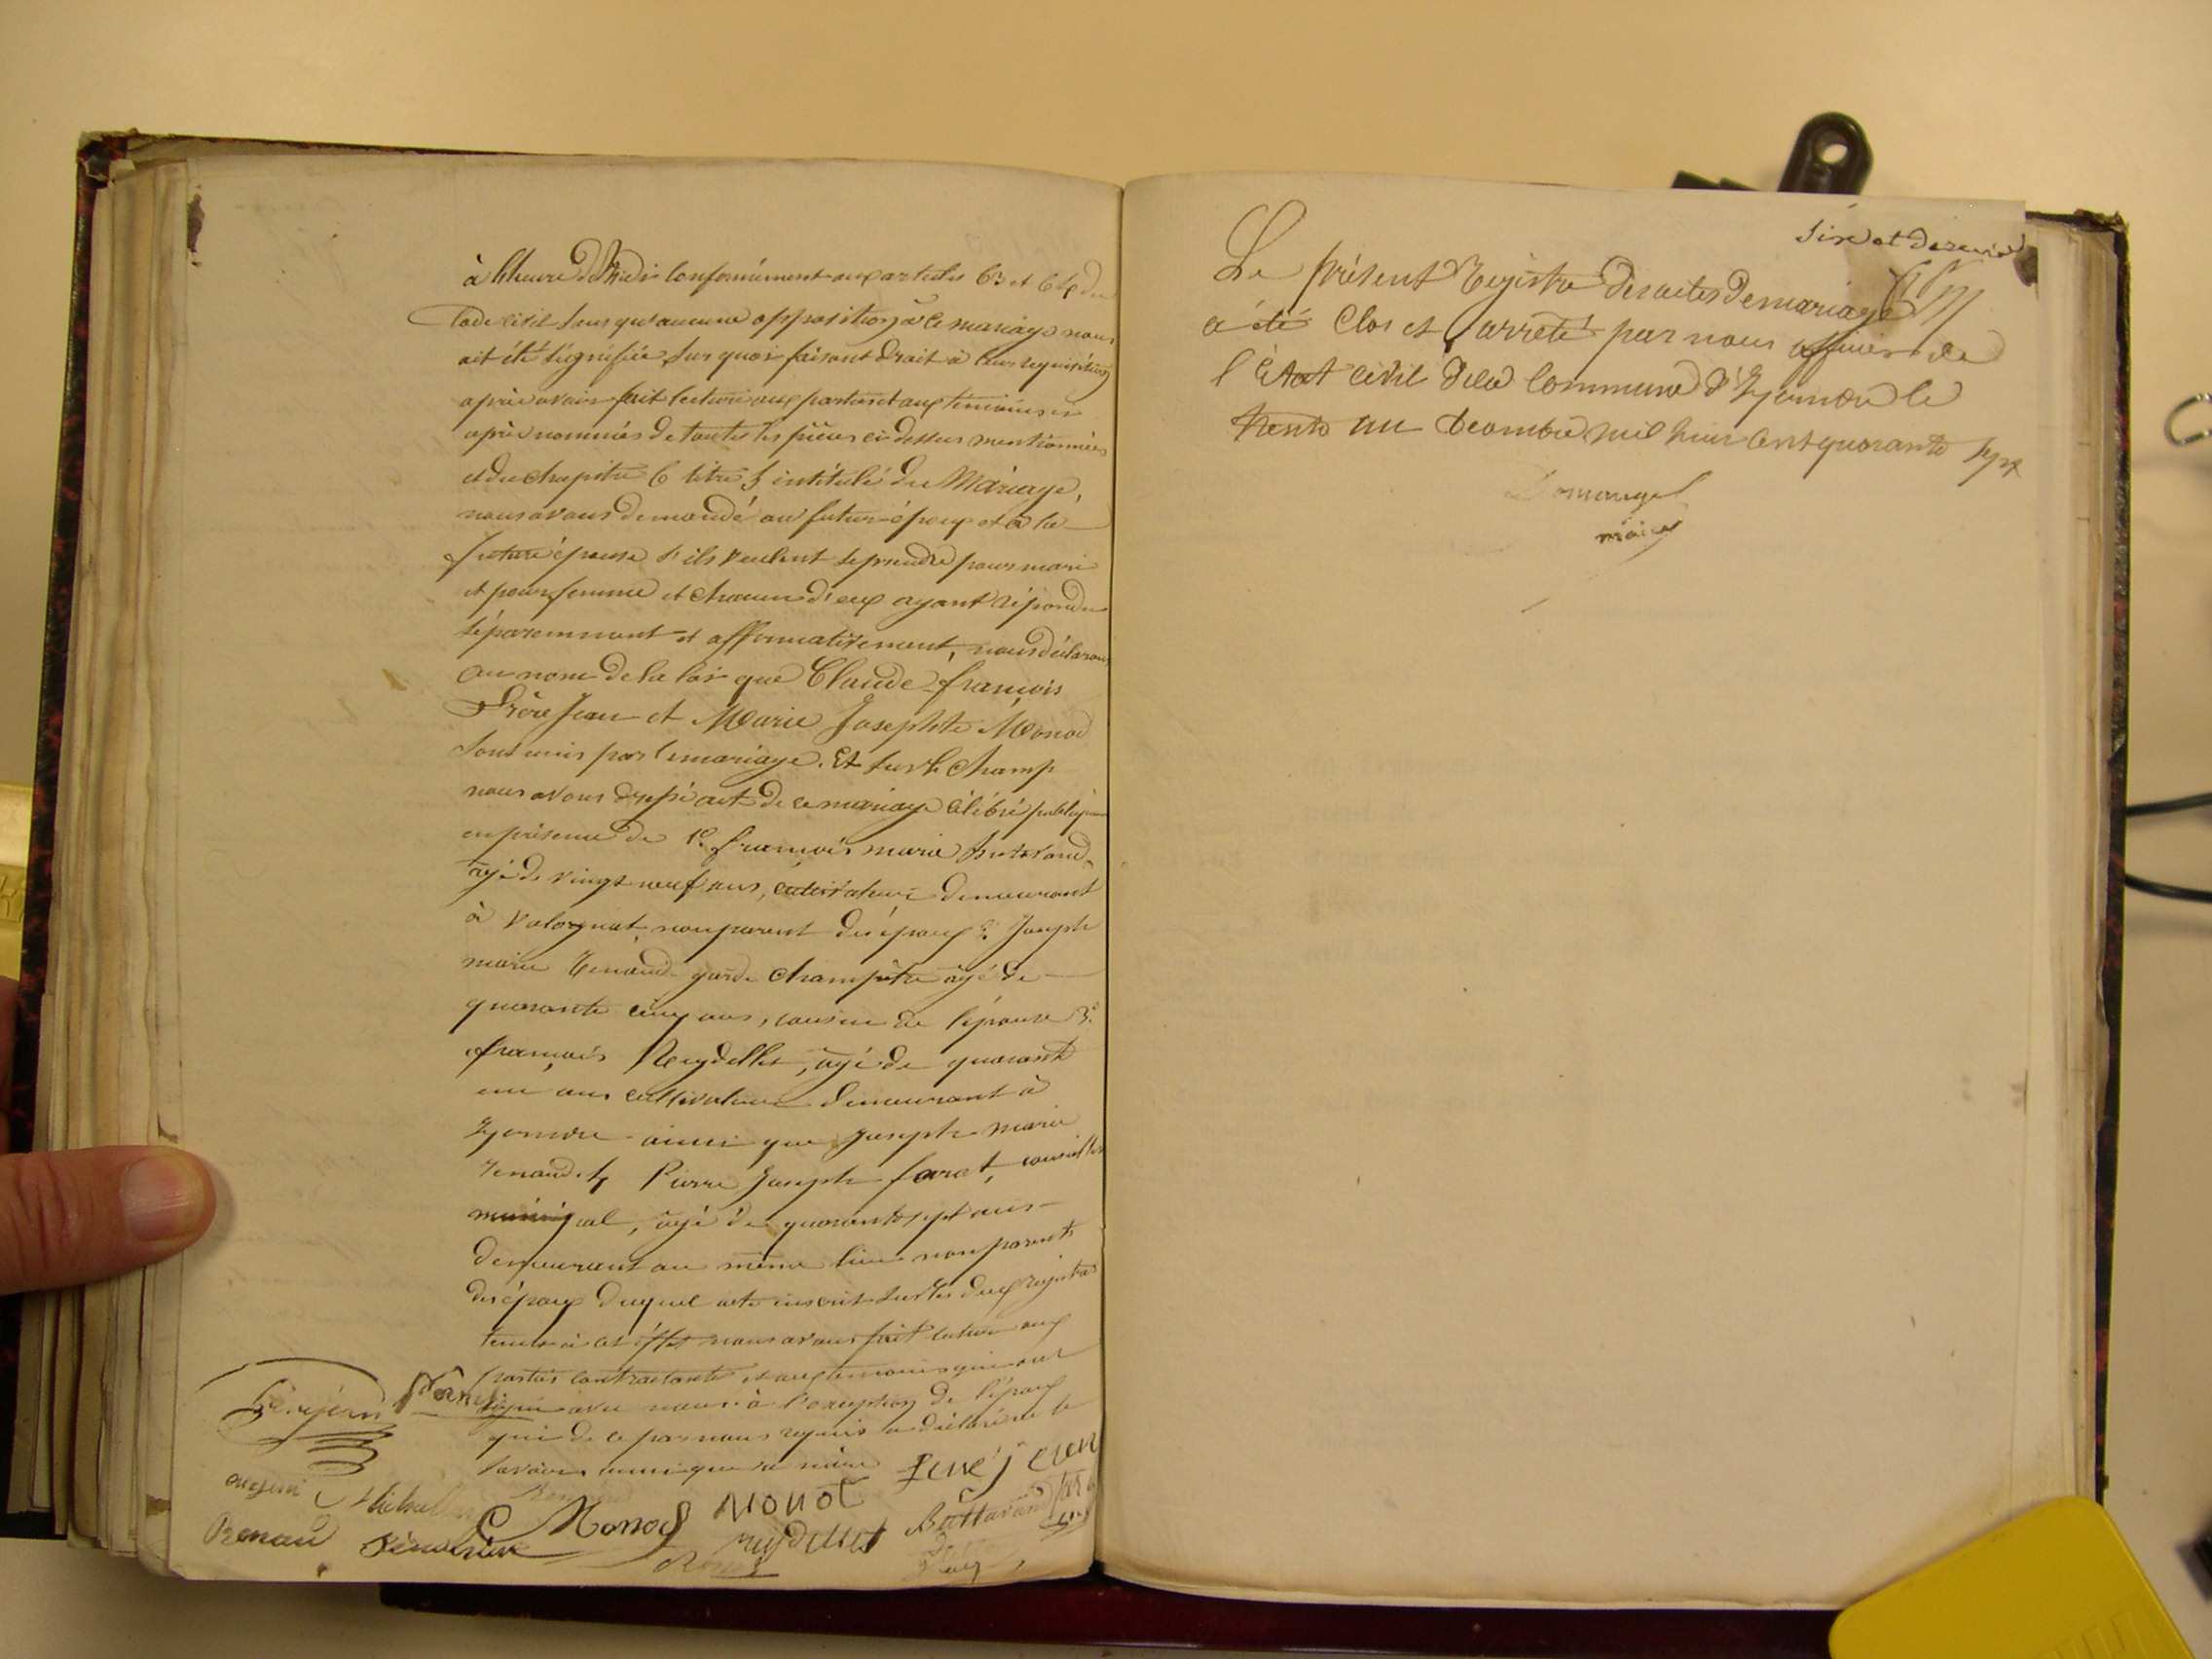 à l'heure de Midi conformément aux articles 63 et 64 du
Code civil sans qu'aucune opposition à ce mariage nous
ait été signifiée sur quoi faisant droit à leur requisition
après avoir fait lecture aux parties et aux temoins ci
après nommés de toutes les pièces ci dessus mentionnées
et du chapitre 6 titre 5 intitulé du Mariage,
nous avons demandé au futur époux et à la
future épouse s'ils veulent se prendre pour mari
et pour femme et chacun d'eux ayant répondu
séparemment et affirmativement, nous déclarons
au nom de la loi que Claude françois
Frère Jean et Marie Josephte Monod
sont unis par le mariage. Et sur le champ
nous avons dressé acte de ce mariage célébré publiq
en présence de 1º françois marie
agé de vingt neuf ans, cultivateur demeurant
à Volognat non parent des époux 2º Joseph
marie Renaud garde champêtre âgé de
quarante cinq ans, cousin de l'épouse 3º
françois Reydellet, âgé de quarante
un ans cultivateur demeurant à
Izernore ainsi que Joseph marie
Renaud 4 Pierre Joseph farat, conseiller
municipal, âgé de quarante sept ans
demeurant au même lieu non parents
des époux duquel acte inscrit sur les deux registres
tenus à cet effet nous avons fait lecture aux
parties contractantes et aux temoins qui ont
signé avec nous à l'exception de l'époux
qui de ce par nous requis a déclaré ne le
savoir ainsi que sa mère
frerejean
Monod Monod
Renaud reydellet Buttavand
Sixe et dernier
Le présent Registre des actes de mariage
a été Clos et arrêté par nous officier de
l'Etat civil de la Commune d'Izernore le
trente un decembre mil huit cent quarante sept
Domangel
maire